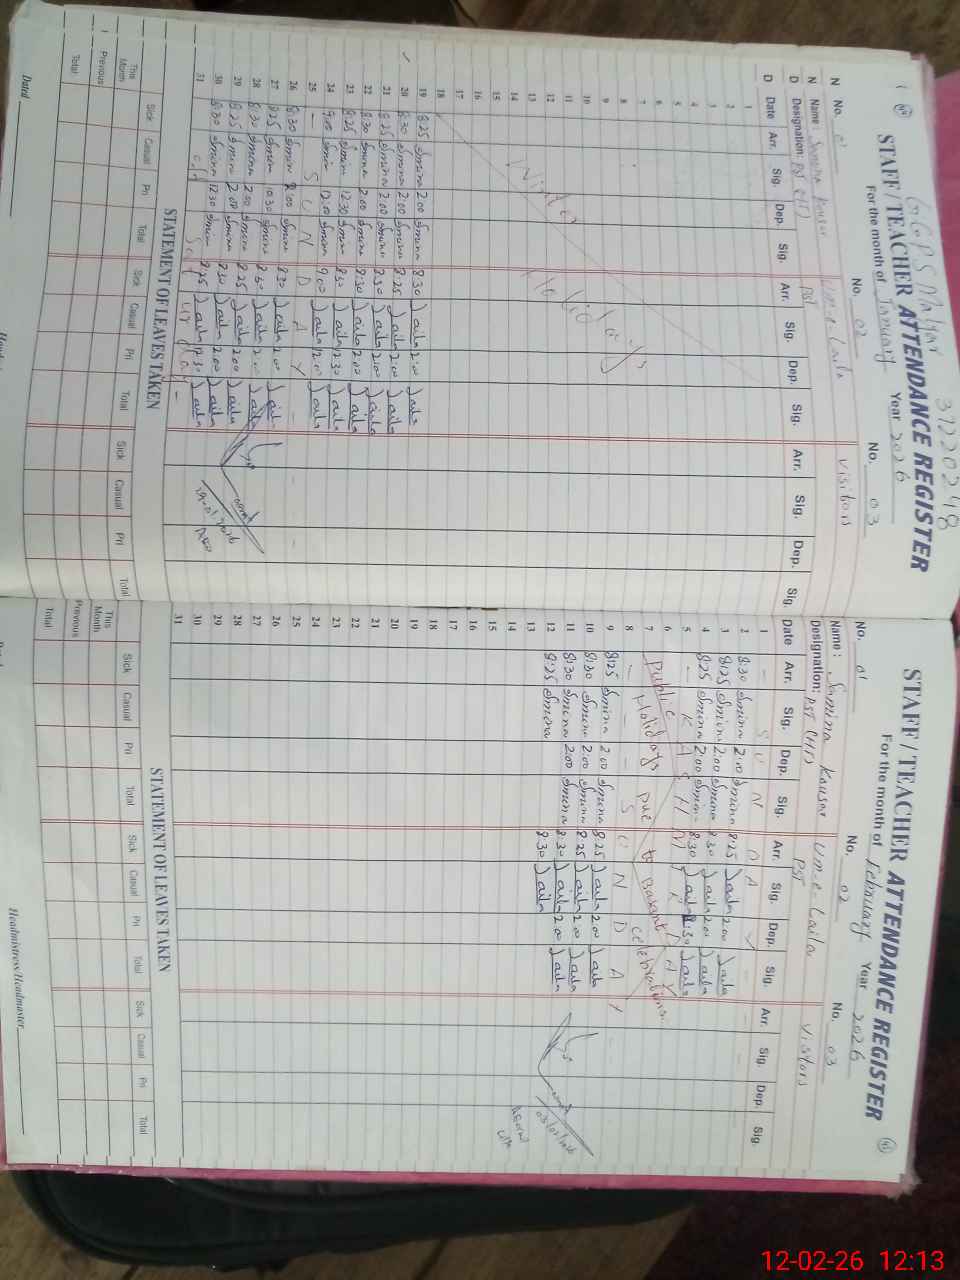 GGPS Malyar 37220248
STAFF / TEACHER ATTENDANCE REGISTER
For the month of January Year 2026
No. 01 No. 02 No. 03
Name: Samina Kousar Um-e-Laila Visitors
Designation: PST PST
Date Arr. Sig. Dep. Sig. Arr. Sig. Dep. Sig. Arr. Sig. Dep. Sig.
1
2
3
4
5
6
7
8
9
10
11
12
13
14
15
16
17
18
Winter Holidays
19 8:25 Smina 2:00 Smina 8:30 Laila 2:00 Laila
20 8:30 Smina 2:00 Smina 8:25 Laila 2:00 Laila
21 8:25 Smina 2:00 Smina 8:30 Laila 2:00 Laila
22 8:30 Smina 2:00 Smina 8:30 Laila 2:00 Laila
23 8:25 Smina 12:30 Smina 8:30 Laila 12:30 Laila
24 9:00 Smina 12:00 Smina 9:00 Laila 12:00 Laila
25 — S U N D A Y
26 8:30 Smina 2:00 Smina 8:30 Laila 2:00 Laila
27 8:25 Smina 10:30 Smina 8:30 Laila 2:00 Laila
28 8:30 Smina 2:00 Smina 8:25 Laila 2:00 Laila
29 8:25 Smina 2:00 Smina 8:30 Laila 2:00 Laila
30 8:30 Smina 12:30 Smina 8:25 Laila 12:30 Laila
31
STATEMENT OF LEAVES TAKEN
Sick Casual Pri Total Sick Casual Pri Total Sick Casual Pri Total
This Month
Previous
Total
Dated
STAFF / TEACHER ATTENDANCE REGISTER
For the month of February Year 2026
No. 01 No. 02 No. 03
Name: Samina Kousar Um-e-Laila Visitors
Designation: PST (H/T) PST
Date Arr. Sig. Dep. Sig. Arr. Sig. Dep. Sig. Arr. Sig. Dep. Sig.
1 — S U N D A Y
2 8:30 Smina 2:00 Smina 8:25 Laila 2:00 Laila
3 8:25 Smina 2:00 Smina 8:30 Laila 2:00 Laila
4 8:25 Smina 2:00 Smina 8:30 Laila 1:30 Laila
5 — K A S H M I R D A Y
6
7 Public Holidays due to Basant celebrations.
8 — S U N D A Y
9 8:25 Smina 2:00 Smina 8:25 Laila 2:00 Laila
10 8:30 Smina 2:00 Smina 8:25 Laila 2:00 Laila
11 8:30 Smina 2:00 Smina 8:30 Laila 2:00 Laila
12 8:25 Smina 8:30 Laila
13
14
15
16
17
18
19
20
21
22
23
24
25
26
27
28
29
30
31
STATEMENT OF LEAVES TAKEN
Sick Casual Pri Total Sick Casual Pri Total Sick Casual Pri Total
This Month
Previous
Total
Headmistress/Headmaster
12-02-26 12:13